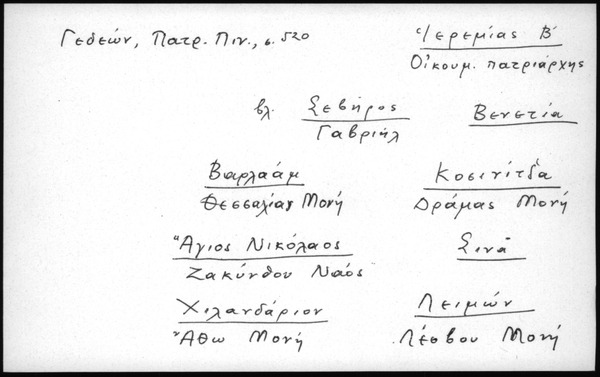 Γεδεών, Πατρ. Πιν., σ. 520
Ἱερεμίας Β΄
Οἰκουμ. πατριάρχης
βλ. Σεβῆρος
Γαβριήλ
Βενετία
Βαρλαάμ
Θεσσαλίας Μονή
Κοσινίτσα
Δράμας Μονή
Ἅγιος Νικόλαος
Ζακύνθου Ναός
Σινᾶ
Χιλανδάριον
Ἄθω Μονή
Λειμών
Λέσβου Μονή